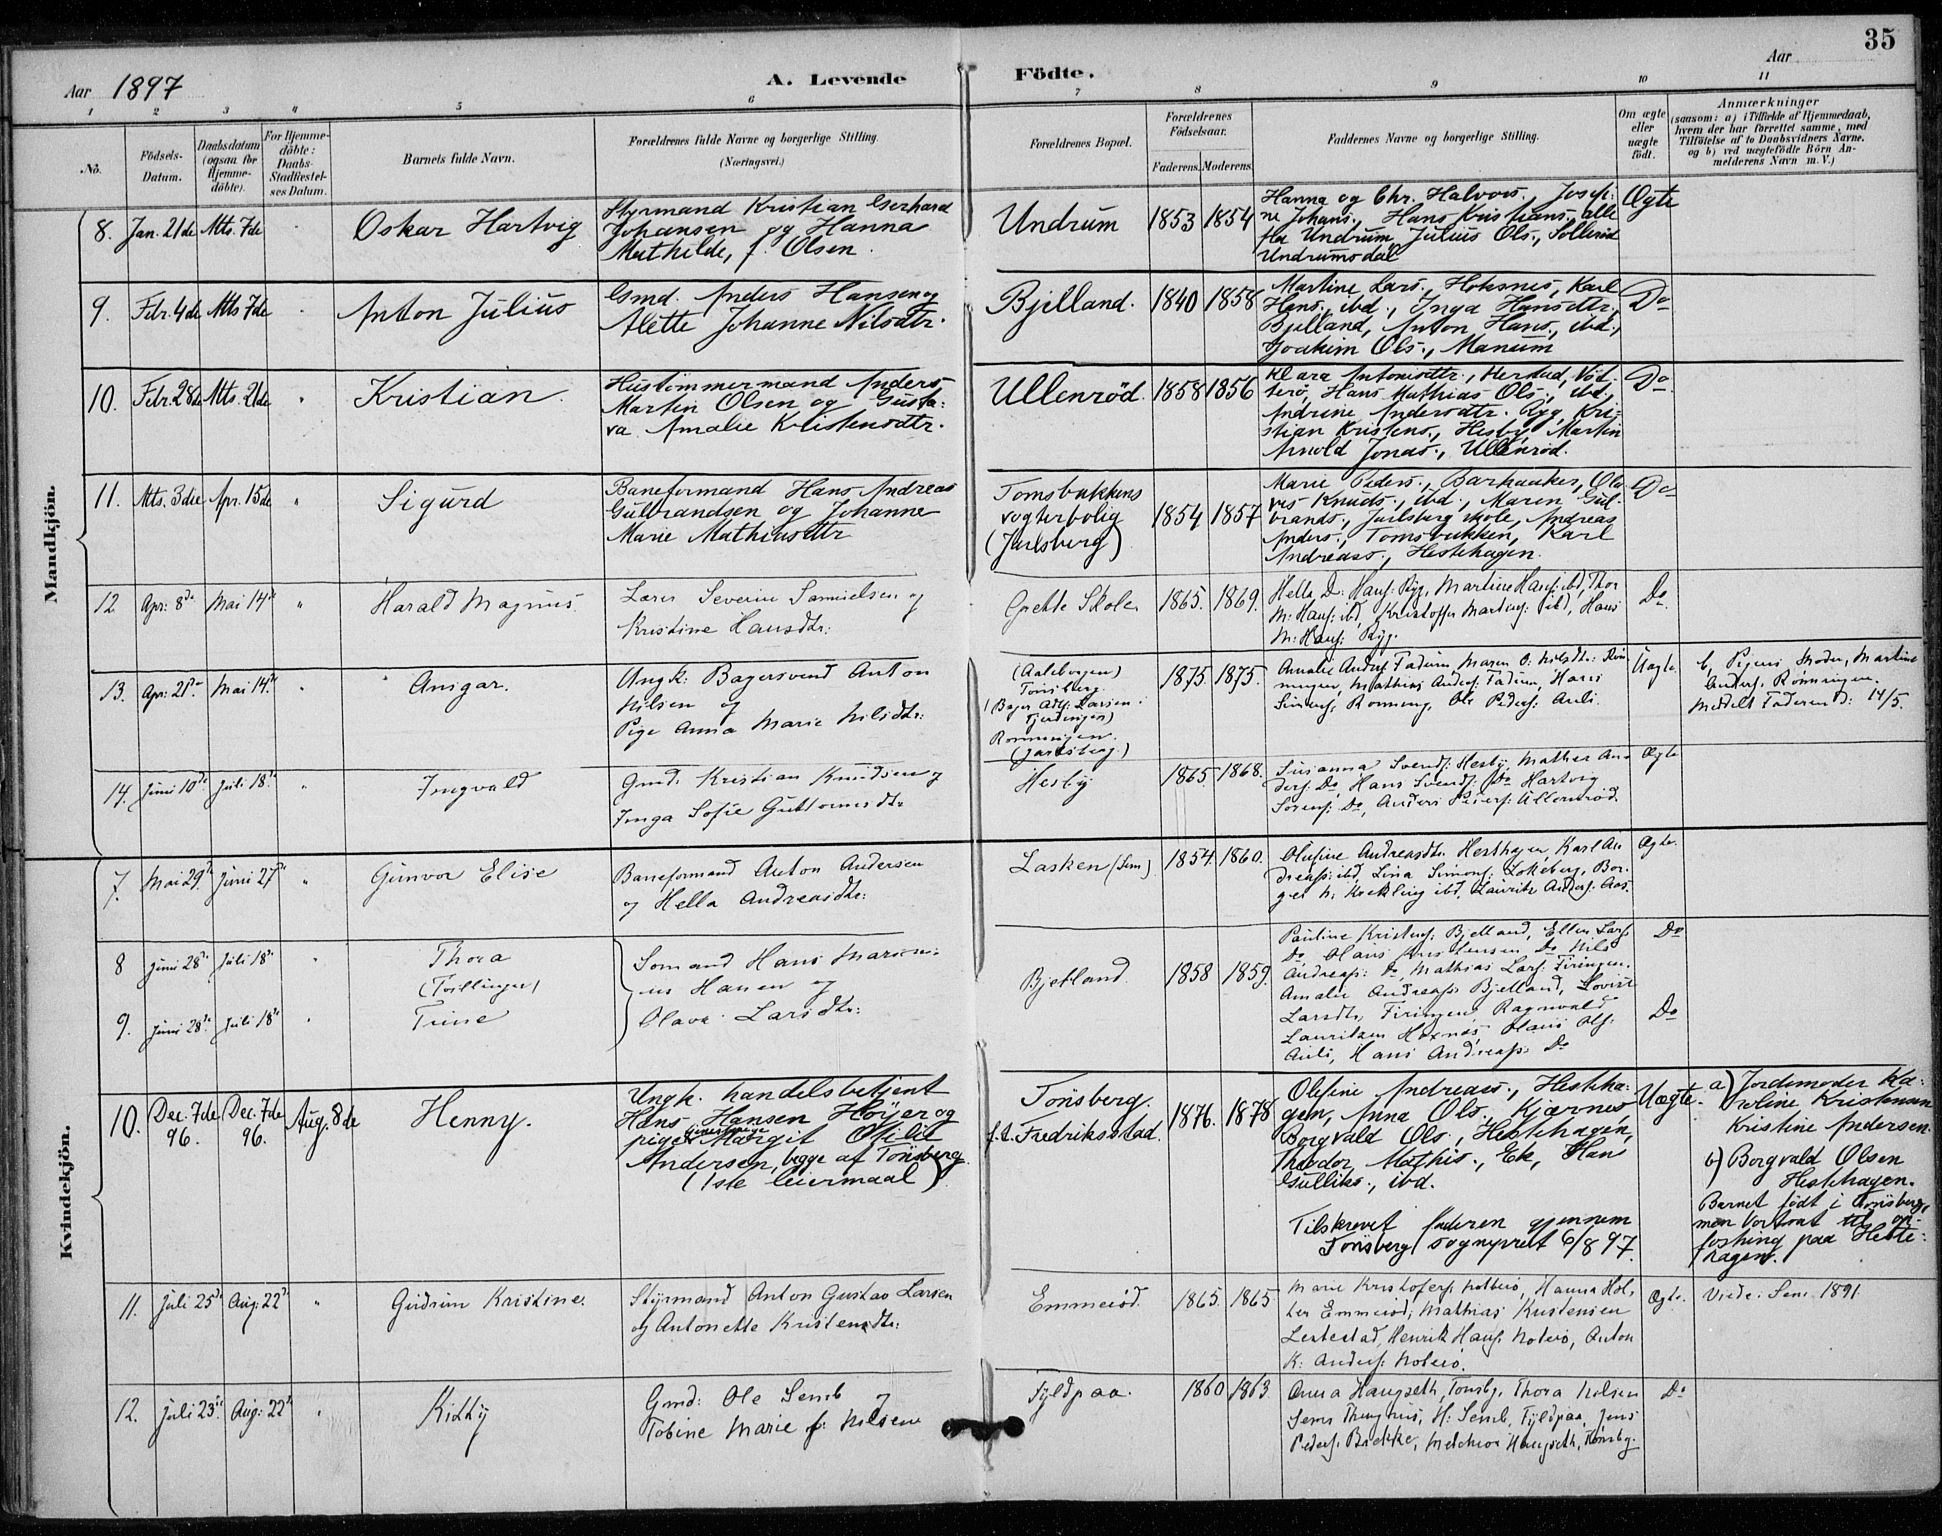 35
Aar 1897
A. Levende Födte.
Aar
1 2 3 4 5 6 7 8 9 10 11
No.
Födsels-Datum.
Daabsdatum (ogsaa for Hjemme-döbte).
For Hjemme-döbte: Daabs-Stadfæstel-ses Datum.
Barnets fulde Navn.
Forældrenes fulde Navne og borgerlige Stilling. (Næringsvei.)
Forældrenes Bopæl.
Forældrenes Födselsaar.
Faderens. Moderens.
Faddernes Navne og borgerlige Stilling.
Om ægte eller uægte födt.
Anmærkninger
(saasom: a) i Tilfælde af Hjemmedaab,
hvem der har forrettet samme, med
Tilföielse af to Daabsvidners Navne.
og b) ved uægtefödte Börn An-
melderens Navn m. V.)
Mandkjön.
8. Jan. 21de Mts. 7de " Oskar Hartvig
Styrmand Kristian Gerhard
Johansen og Hanna
Mathilde, f. Olsen.
Undrum 1853 1854
Hanna og Chr. Halvors., Josefi-
ne Johans., Hans Kristians., alle
fra Undrum, Julius Ols., Solleröd
Undrumsdal
Ægte
9. Febr. 4de Mts 7de " Anton Julius
Gmd. Anders Hansen og
Alette Johanne Nilsdtr.
Bjelland. 1840 1858
Martine Lars., Holmsnes, Karl
Hans., ibd., Inga Hansdtr.,
Bjelland, Anton Hans., ibd.,
Joakim Ols., Manum
Do
10. Febr. 28de Mts. 21de " Kristian.
Hustömmermand Anders
Martin Olsen og Gusta-
va Amalie Kristensdtr.
Ullenröd. 1858 1856
Klara Antonsdtr., Herstad, Nöt-
terö, Hans Mathias Ols., ibd.,
Andrine Andersdtr. Ryg, Kri-
stian Kristens., Hesby, Martin
Arnold Jonas., Ullenröd.
Do
11. Mts. 3die Apr. 15de " Sigurd
Baneformand Hans Andreas
Gulbrandsen og Johanne
Marie Mathiasdtr
Tomsbakkens
vogterbolig
(Jarlsberg)
1854 1857
Marie Peders., Barkaaker, Ola-
ves Knuds., ibd., Maren Gul-
brands., Jarlsberg skole, Andreas
Anders., Tomsbakken, Karl
Andreass., Hestehagen.
Do
12 Apr: 8de Mai 14de " Harald Magnus.
Lærer Severin Samuelsen og
Kristine Hansdtr:
Grette Skole. 1865. 1869.
Hella D: Hans: Ryg, Martine Hans: ibd, Thor
M: Hans: ibd, Kristoffer Martins: ibd, Hans
M: Hans: Ryg.
Do
13. Apr: 21de Mai 14de " Ansgar.
Ungk: Bagersvend Anton
Nilsen og
Pige Anna Marie Nilsdtr:
Tönsberg.
(Bager Adf: Larsen
Rönningen.
(Jarlsberg.)
1875. 1875.
Amalie Anders: Tadum, Maren O: Nilsdtr: Rön-
ningen, Mathias Anders: Tadum, Hans
Simens: Rönning, Ole Peders: Auli.
Uægte
b, Pigens Moder, Martine
Anders. Rönningen.
Meddelt Faderen d: 14/5.
14. Juni 10de Juli 18de " Ingvald
Gmd: Kristian Knudsen og
Inga Sofie Guttormsdtr
Hesby 1865. 1868.
Susanna Svends: Hesby, Mathea An-
ders: Do, Hans Svends: Do Hartvig
Sörens: Do, Anders Peders: Ullenröd.
Ægte
Kvindekjön.
7. Mai 29de Juni 27de " Gunvor Elise
Baneformand Anton Andersen
og Hella Andreasdtr:
Lasken (Sem) 1854. 1860.
Olufine Andreasdtr. Hesthagen, Karl An-
dreass: ibd, Lina Simons: Lökeberg, Bor-
ger N. Krekling ibd, Lauritz Anders: Aas.
Ægte.
8 Juni 28de Juli 18de " Thora
(Tvillinger)
9. Juni 28de Juli 18de " Trine
Sömand Hans
Hansen og
Olava Larsdtr:
Bjelland. 1858 1859.
Pauline Kristens: Bjelland, Ellen Lars:
Do, Hans Kristiansen Do Nils
Andreass: Do, Mathias Lars: Firingen.
Amalie Andreass. Bjelland, Lovise
Larsdtr. Firingen, Ragnvald
Lauritsen Hoxnäs, Hans Ols:
Auli, Hans Andreass: Do
Do
Do
10. Dec. 7de 96. Dec. 7de 96. Aug. 8de Henny.
Ungk. handelsbetjent
Hans Hansen Höyer og
pige Margit Otilie
Andersen, begge af Tönsberg
(1ste leiermaal)
Tönsberg
f.t. Fredriksstad.
1876. 1878
Olefine Andreass., Hestha-
gen, Anna Ols. Kjærnes
Borgvald Ols., Hesthagen,
Theodor Mathis., Ek, Hans
Gulliks., ibd.
Tilskrevet faderen gjennem
Tönsberg sogneprest 6/8 97.
Uægte.
a) Jordemoder Ka-
roline Kristensen
Kristine Andersen.
b) Borgvald Olsen
Hesthagen.
Barnet födt i Tönsberg,
men bortsat til op-
fostring paa Heste-
hagen.
11. Juli 25de Aug: 22de " Gudrun Kristine.
Styrmand Anton Gustav Larsen
og Antonette Kristensdtr:
Emmeröd. 1865. 1865
Marie Kristofers: Nötterö, Hanna Hol-
ter Emmeröd, Mathias Kristensen
Lestestad, Henrik Hans: Nöterö, Anton
K: Anders: Nöterö.
Ægte.
Viede. Sem 1891.
12. Juli 23de Aug: 22de " Kitty
Gmd: Ole Semb og
Tobine Marie f. Nilsen
Fyldpaa. 1860 1863
Anna Haugseth, Tönsby. Thora Nilsen
Sem, H: Semb, Fyldpaa, Jens
Peders. Bække, Melchior Haugseth, Tönsby.
Do